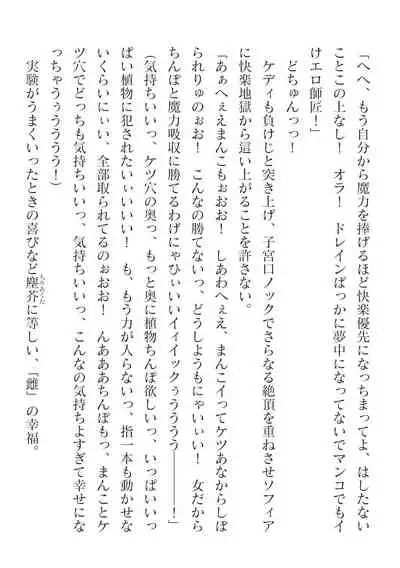 「へへ、もう自分から魔力を捧げるほど快楽優先になっちまってよ、はしたない
ことこの上なし！　オラ！　ドレインばっかに夢中になってないでマンコでもイ
けエロ師匠！」
どちゅんっっ！
ケディも負けじと突き上げ、子宮口ノックでさらなる絶頂を重ねさせソフィア
に快楽地獄から這い上がることを許さない。
「あぁへぇえまんこもぉおお！　しあわへぇえ、まんこイってケツあなからしぼ
られりゅのぉお！　こんなの勝てないっ、どうしようもにゃいぃい！　女だから
ちんぽと魔力吸収に勝てるわげにゃひぃいいイィイックぅうううう――――！」
（気持ちいいっ、ケツ穴の奥っ、もっと奥に植物ちんぽ欲しいっ、いっぱいいっ
ぱい植物に犯されたいぃいいい！　も、もう力が入らないっ、指一本も動かせな
いくらいにぃい、全部取られてるのぉおお！　んああああちんぽもっ、まんことケ
ツ穴でどっちも気持ちいいっ、気持ちいいっ、こんなの気持ちよすぎて幸せにな
っちゃうぅうううう！）
実験がうまくいったときの喜びなど塵芥に等しい、「雌」の幸福。
ちりあくた